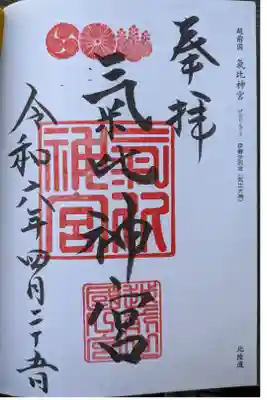 越前国 氣比神宮
北陸道
奉拝
氣比神宮
令和六年四月二十五日
氣比神宮